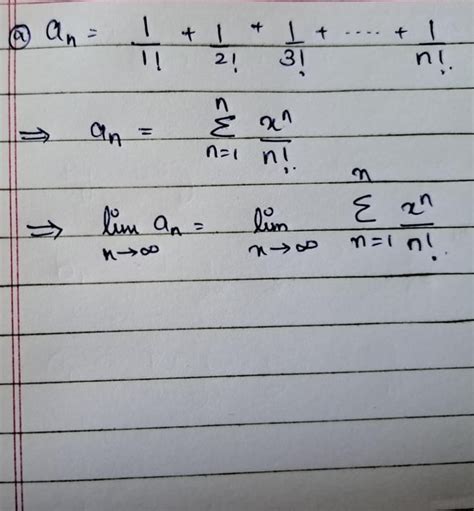 ⓐ aₙ = 1/1! + 1/2! + 1/3! + ---- + 1/n!.
⇒ aₙ = ∑ₙ₌₁ⁿ xⁿ/n!.
⇒ lim_{n→∞} aₙ = lim_{n→∞} ∑ₙ₌₁ⁿ xⁿ/n!.